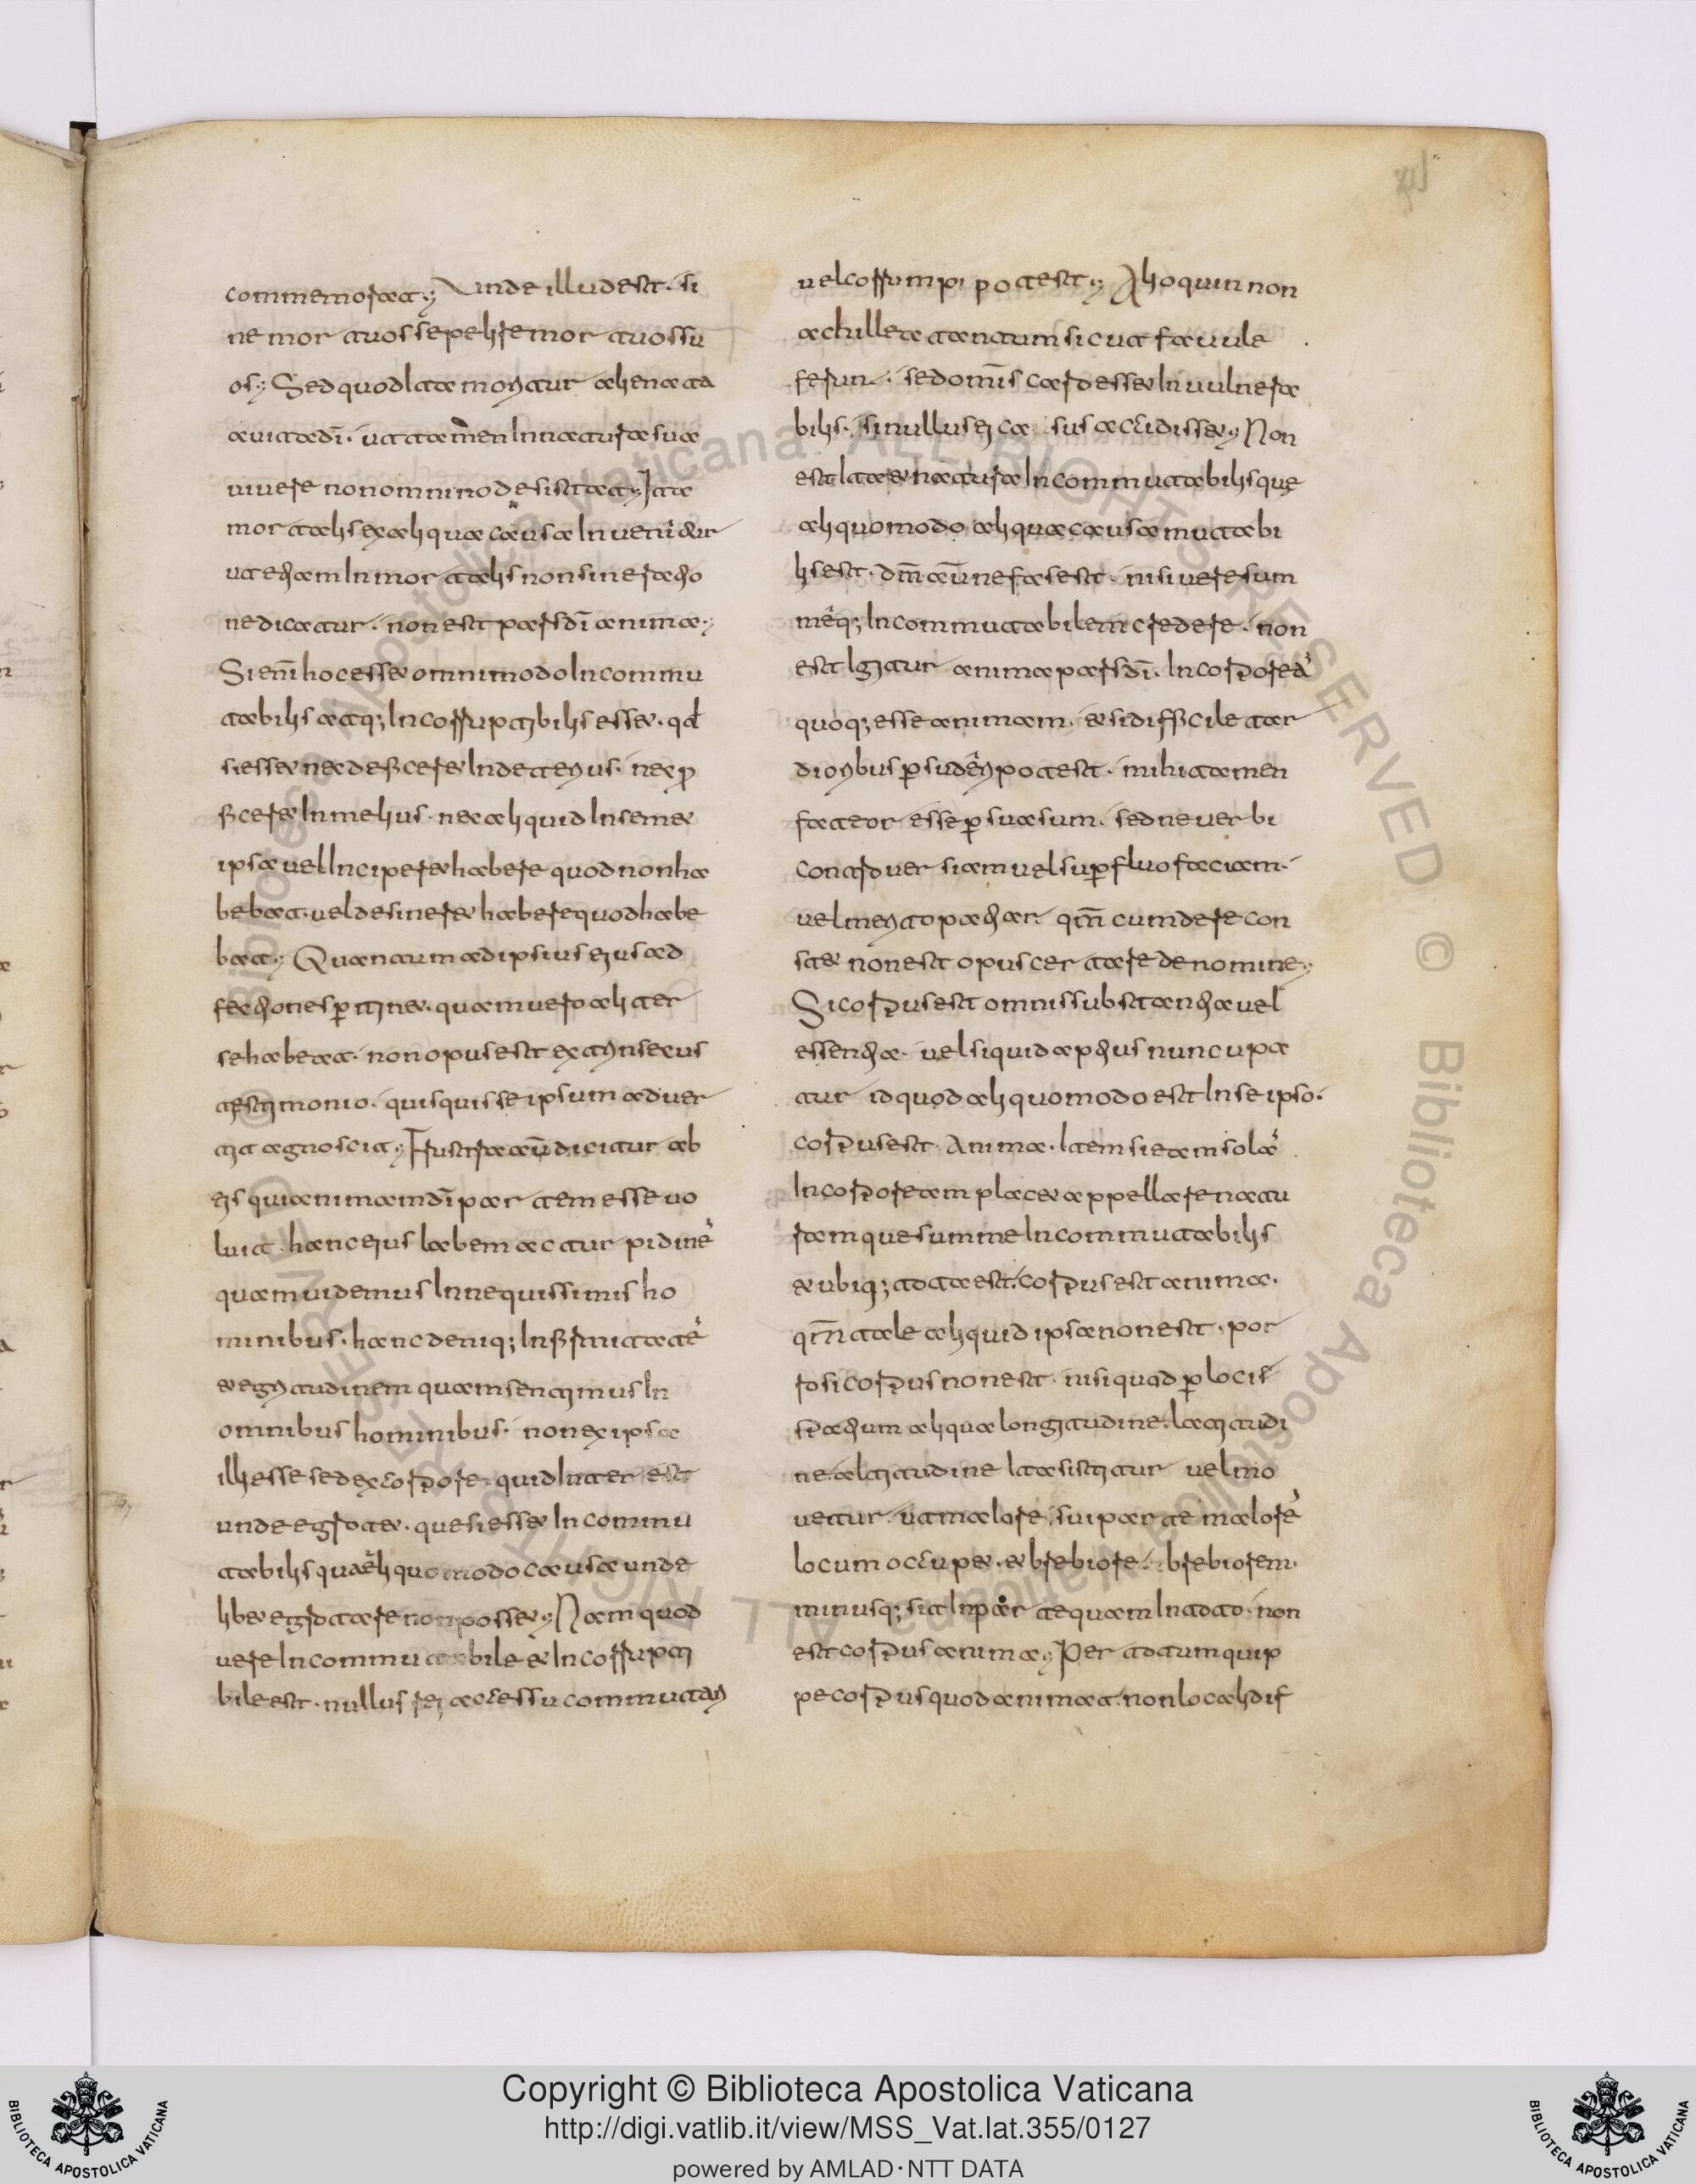 lx
commemorat; Unde illud est. si
ne mortuos sepelire mortuos su
os; Sed quod Ita moritur alienata
a uita dī. ut tam̄en In natura sua
uiuere non omnino desistat; Ita
mortalis ex aliqua causa Inuenitur
ut etiam Inmortalis non sine ratio
ne dicatur. non est pars dī anima;
Si enī hoc esset omnimodo Incommu
tabilis atq; Incorruptibilis esset. qđ
si esset nec deficeret In deterius. nec ꝓ
ficeret In melius. nec aliquid In semet
ipsa uel Inciperet habere quod non ha
bebat. uel desineret habere quod habe
bat; Quantum ad ipsius eius ad
fectiones ꝑtinet. quam uero aliter
se habeat. non opus est extrinsecus
testimonio. quisquis se ipsum aduer
tit agnoscit; Frustra aū dicitur ab
eis qui animam dī partem esse uo
luit. hanc eius labem ac turpidinē
quam uidemus In nequissimis ho
minibus. hanc deniq; Infirmitatē
et egritudinem quam sentimus In
omnibus hominibus. non ex ipsa
illi esse sed ex corpore. quid Interest
unde egrotet. que si esset Incommu
tabilis quaelī quomodo causa unde
libet egrotare non posset; Nam quod
uere Incommutabile et Incorrupti
bile est. nullus rei accessu commutari
uel corrumpi potest; Alioquin non
achillea tantum sicut fauule
ferun. sed omīs caro esset Inuulnera
bilis. si nullus ei casus accidisset; Non
est Ita et natura Incommutabilis quę
aliquomodo aliqua causa mutabi
lis est. dm̄ aū nefas est. nisi uere sum
mēq; Incommutabilem credere. non
est Igitur anima pars dī. Incorporeā
quoq; esse animam. et si difficile tar
dioribus ꝑsudēri potest. mihi tamen
fateor esse ꝑsuasum. sed ne uerbi
controuersiam uel suꝑfluo faciam.
uel merito patiar. qm̄ cum de re con
stet non est opus certare de nomine;
Si corpus est omnis substantia uel
essentia. uel si quid aptius nuncupa
tur id quod aliquomodo est In se ipso.
corpus est Anima. Item si eam solā
Incorpoream placet appellare natu
ram que summe Incommutabilis
et ubiq; tota est. corpus est anima.
qm̄ tale aliquid ipsa non est. por
ro si corpus non est. nisi quod ꝑ locis
spatium aliqua longitudine. latitudi
ne altitudine Ita sistitur uel mo
uetur. ut maiore sui parte maiorē
locum occupet. et breuiore breuiorem.
minusq; sit In parte quam In toto. non
est corpus anima; Per totum quip
pe corpus quod animat. non locali dif
Copyright © Biblioteca Apostolica Vaticana
http://digi.vatlib.it/view/MSS_Vat.lat.355/0127
powered by AMLAD·NTT DATA